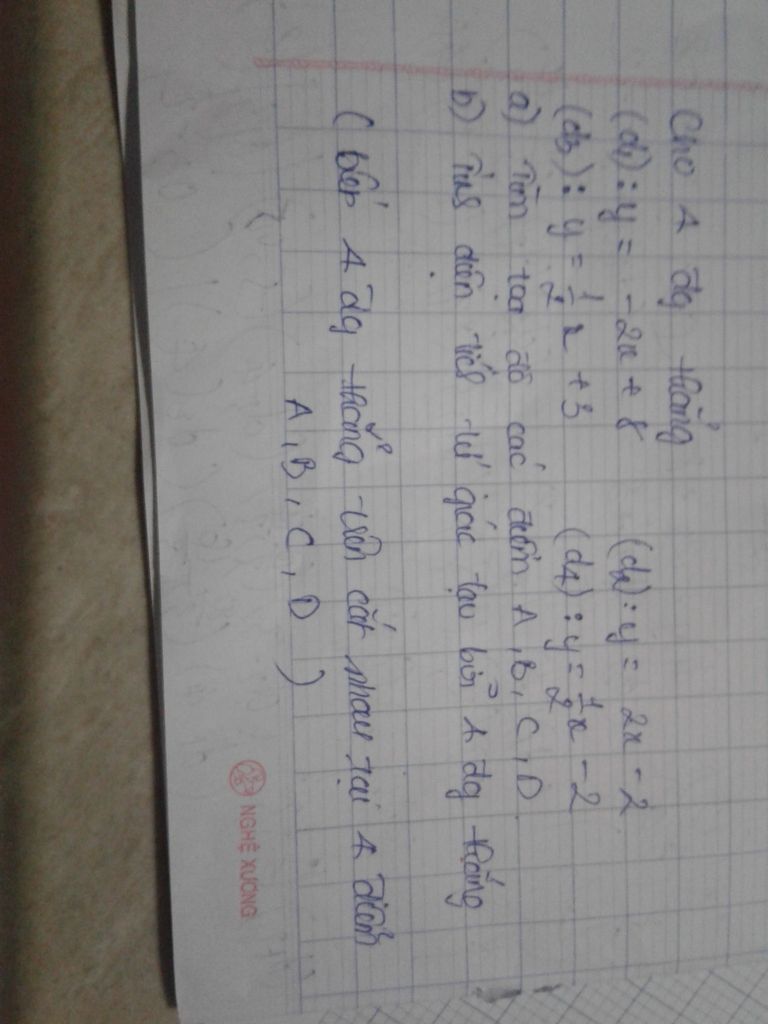 Cho 4 đg thẳng
(d1) : y = -2x + 8 (d2) : y = 2x - 2
(d3) : y = 1/2 x + 3 (d4) : y = 1/2 x - 2
a) Tìm tọa độ các điểm A, B, C, D
b) Tính diện tích tứ giác tạo bởi 4 đg thẳng
( biết 4 đg thẳng trên cắt nhau tại 4 điểm
A, B, C, D )
NGHỆ XƯƠNG